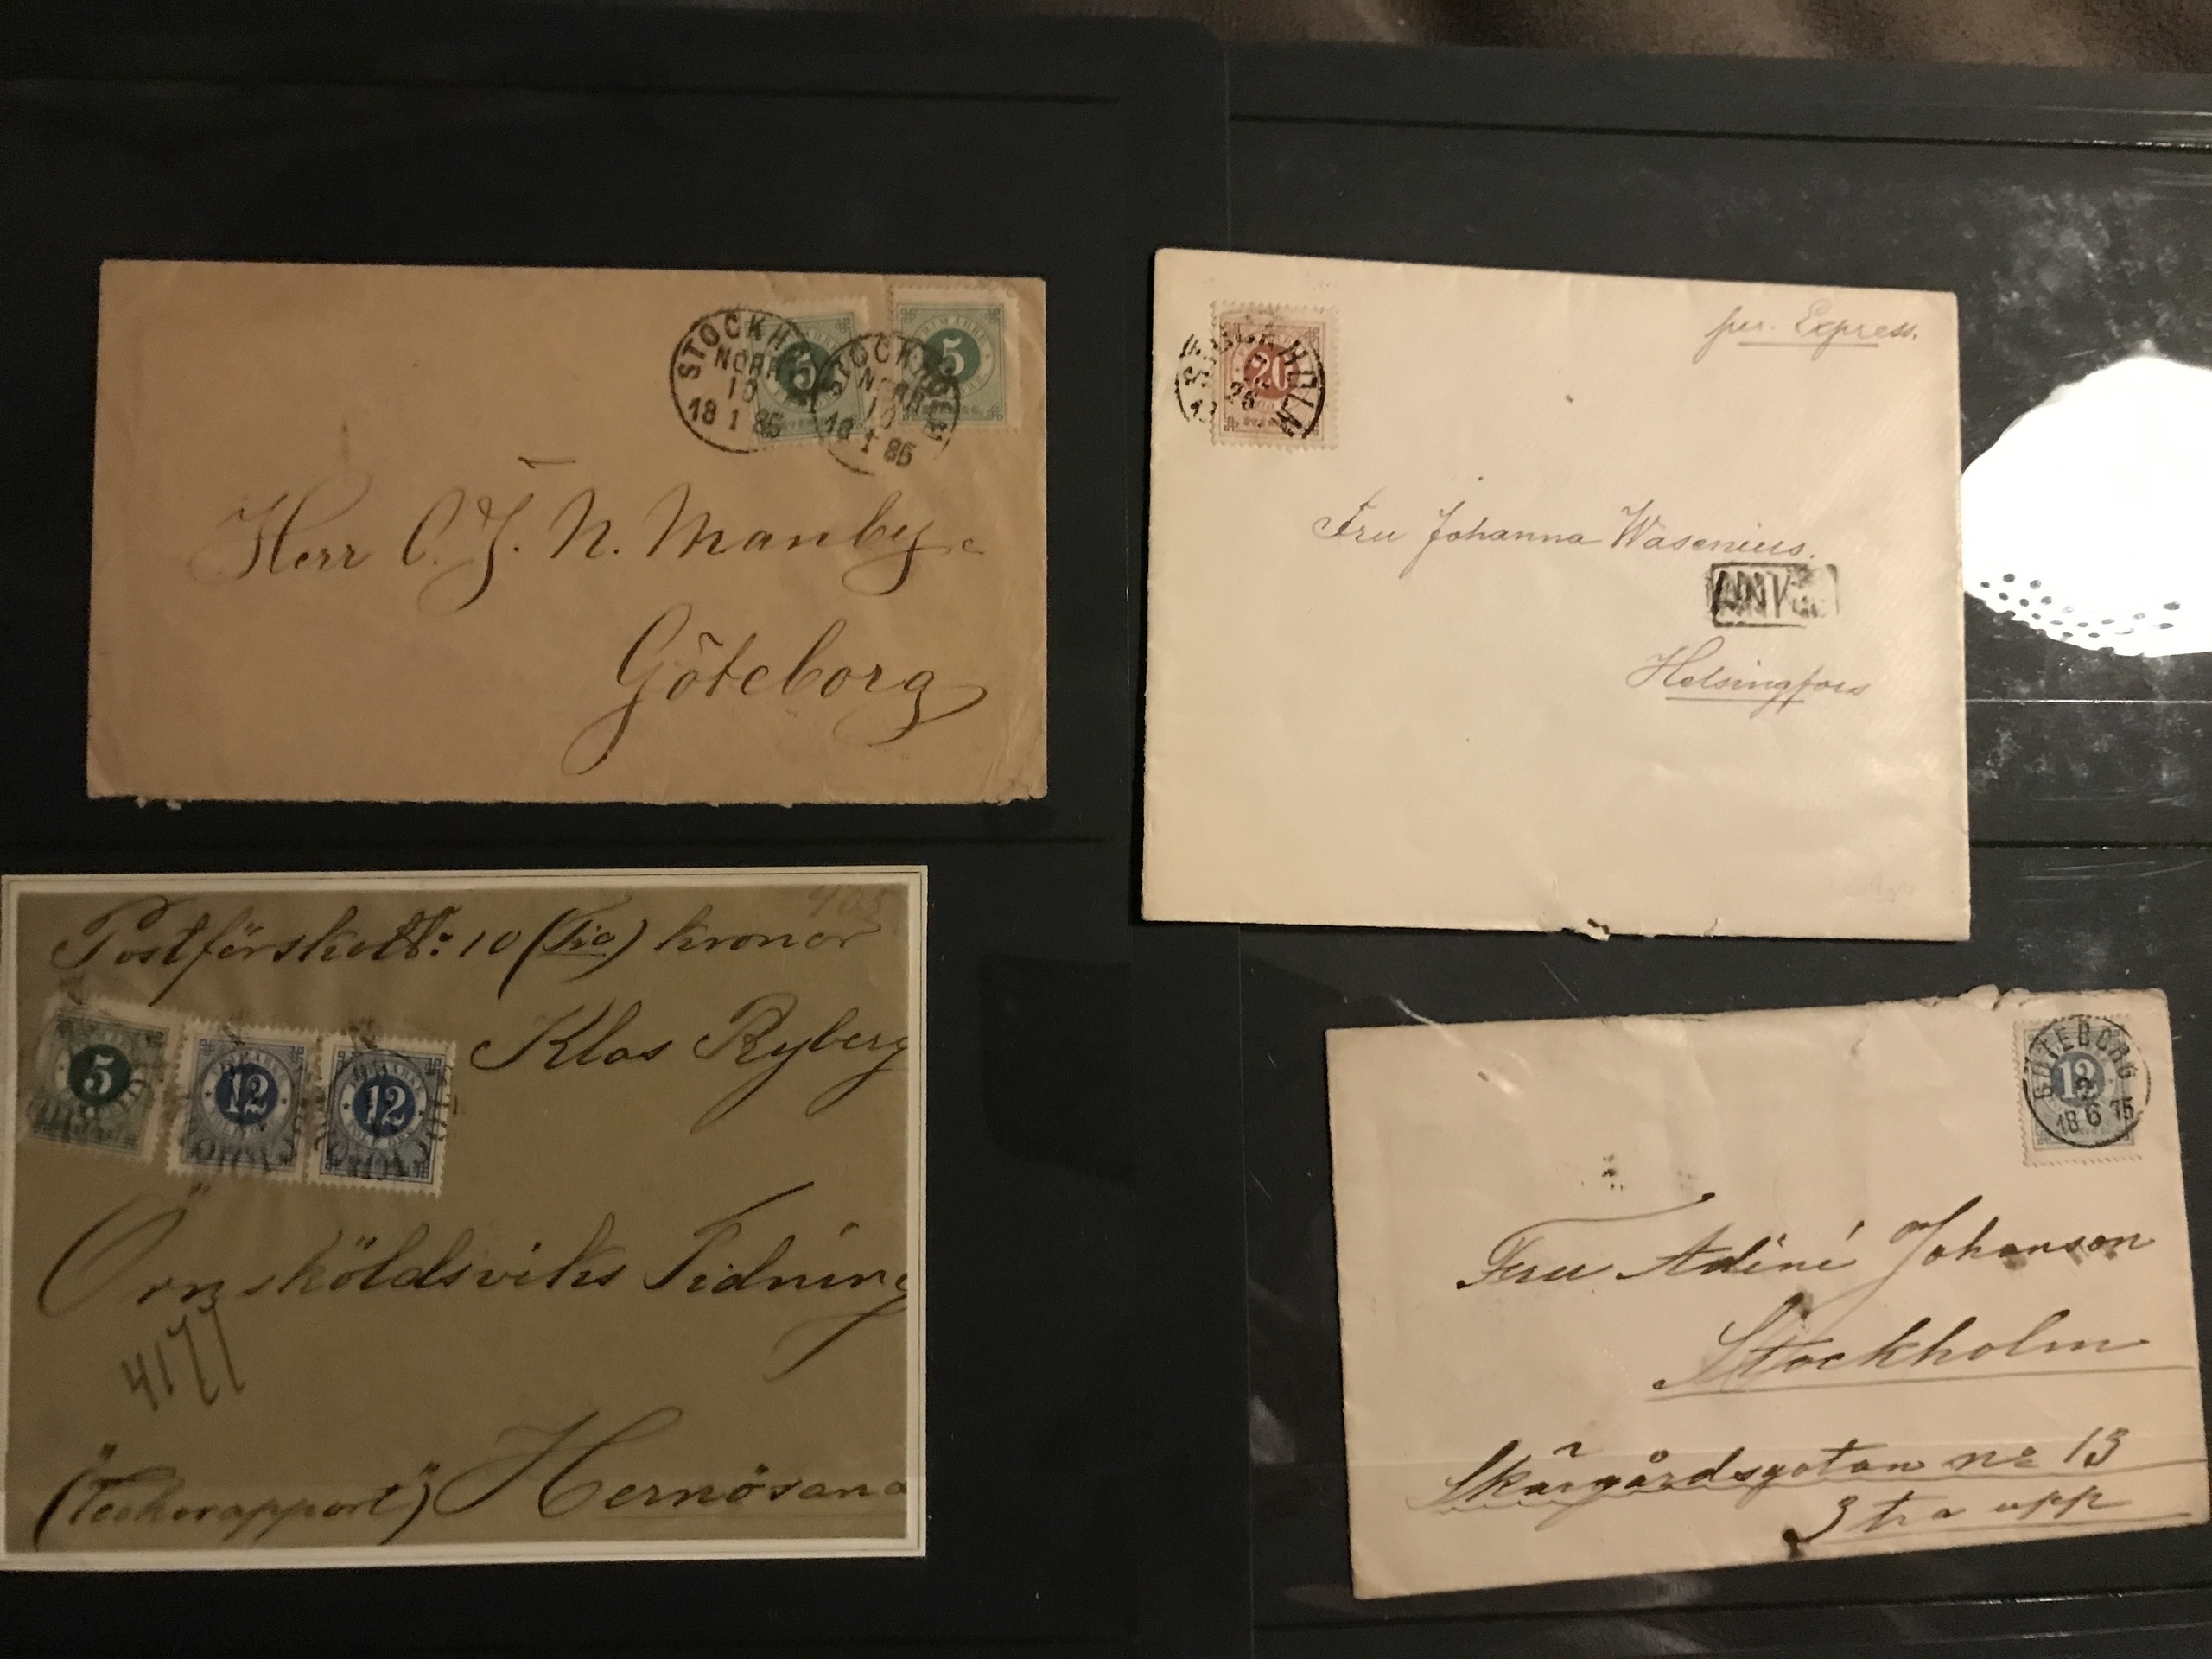 STOCKHOLM
NORR
10
18 1 86
5
STOCKHOLM
NORR
10
18 1 86
5
FRIMÄRKE
Herr C. J. N. Manby
Göteborg
per. Express.
STOCKHOLM
20
26
Fru Johanna Wasenius.
ANK
Helsingfors
405
Postförskott: 10 (Tio) kronor
Klas Ryberg
5
12
FRIMÄRKE
12
FRIMÄRKE
TOLF ÖRE
Örnsköldsviks Tidning
4177
Hernösand
GÖTEBORG
2
18 6 75
12
Fru Adéné Johanson
Stockholm
Skärgårdsgatan No 13
3 tra upp